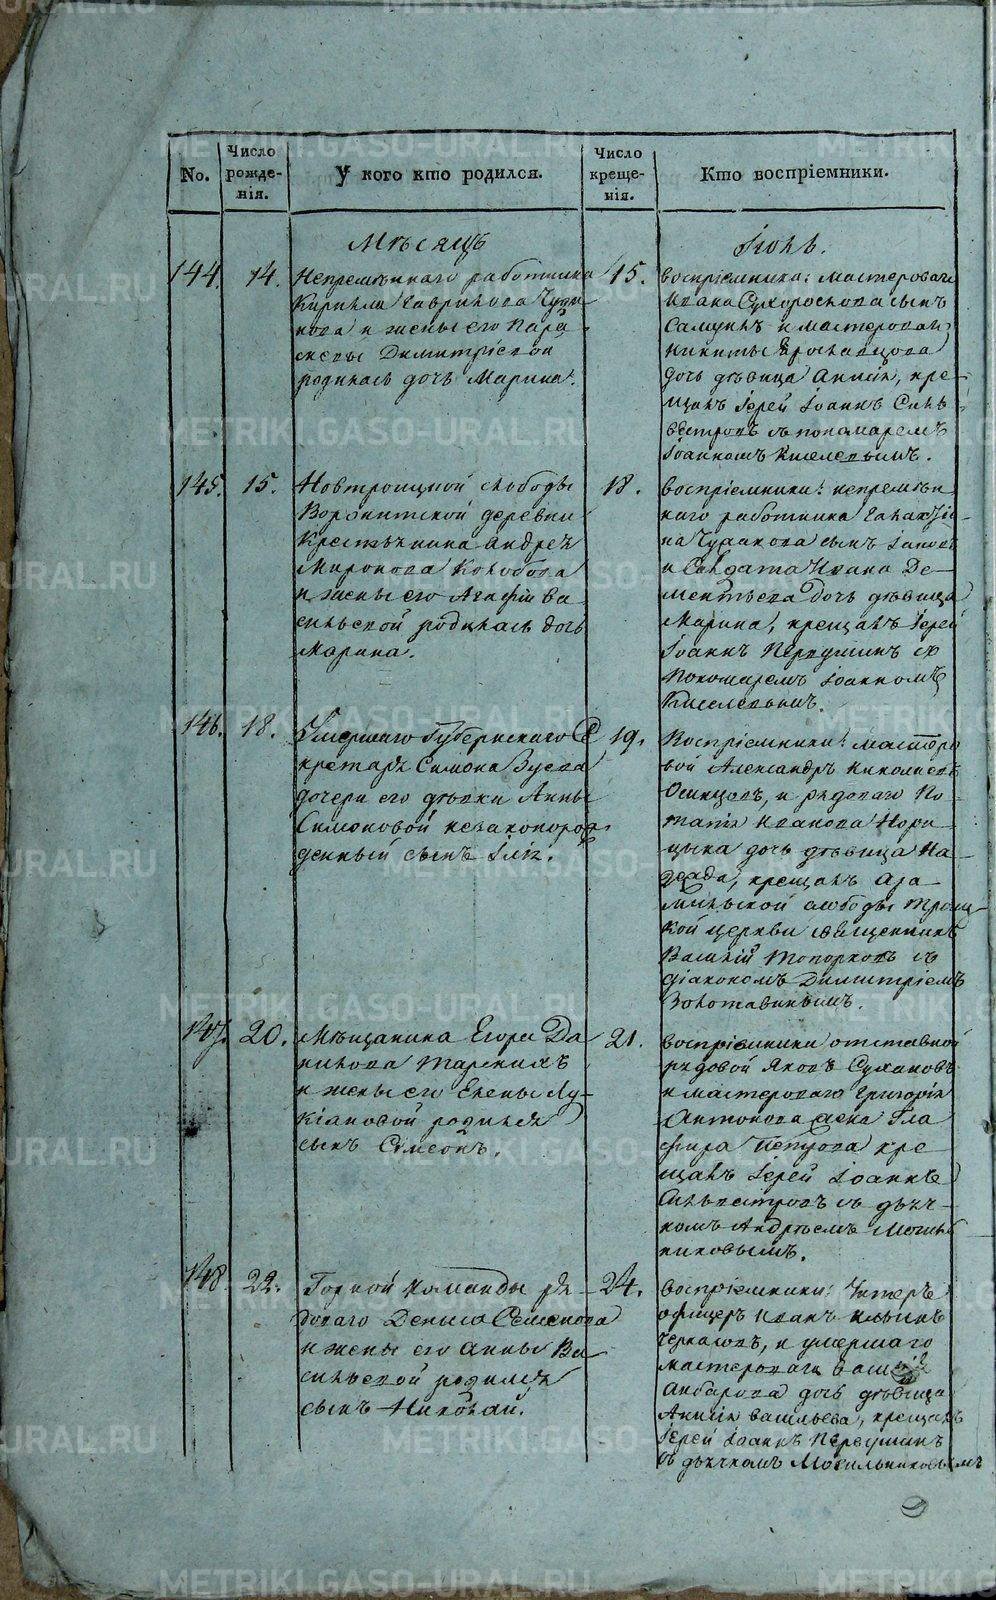 No.
Число рожде-нія.
У кого кто родился.
Число креще-нія.
Кто воспріемники.
Мѣсяцъ
Іюнь.
144.
14.
Непремѣннаго работника
Кирилла Гаврилова Чуди
нова и жены его Пара
скевы Димитріевой
родилась дочь Марина.
15.
воспріемники: мастероваго
Ивана Сухороскова сынъ
Самуилъ и мастероваго
Никиты Ярославцова
дочь дѣвица Анисія, кре-
щалъ Іерей Іоаннъ Силь
вестровъ съ пономаремъ
Іоанномъ Киселевымъ.
145.
15.
слободы
деревни
Крестьянина Андрея
Миронова Колобова
и жены его Агафіи Ва
сильевой родилась дочь
Марина.
18.
воспріемники: непремѣн
наго работника
Чудинова сынъ
и Солдата Ивана Де-
ментьева дочь дѣвица
Марина, крещалъ Іерей
Іоаннъ съ
Пономаремъ Іоанномъ
Киселевымъ.
146.
18.
Умершаго Губернскаго Се
кретаря Симона Зуева
дочери его дѣвки Анны
Симоновой незаконорож
денный сынъ Ілія.
19.
Воспріемники: мастеро
вой Александръ Николаевъ
Осинцовъ, и рядоваго По
тапія Иванова
дочь дѣвица На
дежда, крещалъ Ара
мильской слободы Троиц-
кой церкви священникъ
Василій Топорковъ съ
діакономъ Димитріемъ
Золотавинымъ.
147.
20.
Мѣщанина Егора Да
нилова
и жены его Елены Лу-
кіановой родился
сынъ Симеонъ.
21.
воспріемники отставной
рядовой Яковъ Сухановъ
и мастероваго Григорія
Антонова жена Гла
фира Петрова кре
щалъ Іерей Іоаннъ
Сильвестровъ съ дьяч-
комъ Андреемъ Мосиль
никовымъ.
148.
22.
Горной команды ря
доваго Дениса Семенова
и жены его Анны Ва
сильевой родился
сынъ Николай.
24.
воспріемники: Унтеръ
офицеръ Иванъ Ильинъ
Черкасовъ, и умершаго
мастероваго Василія
Анбарова дочь дѣвица
Анисія Васильева, крещалъ
Іерей Іоаннъ
съ дьячкомъ Мосильниковымъ
METRIKI.GASO-URAL.RU